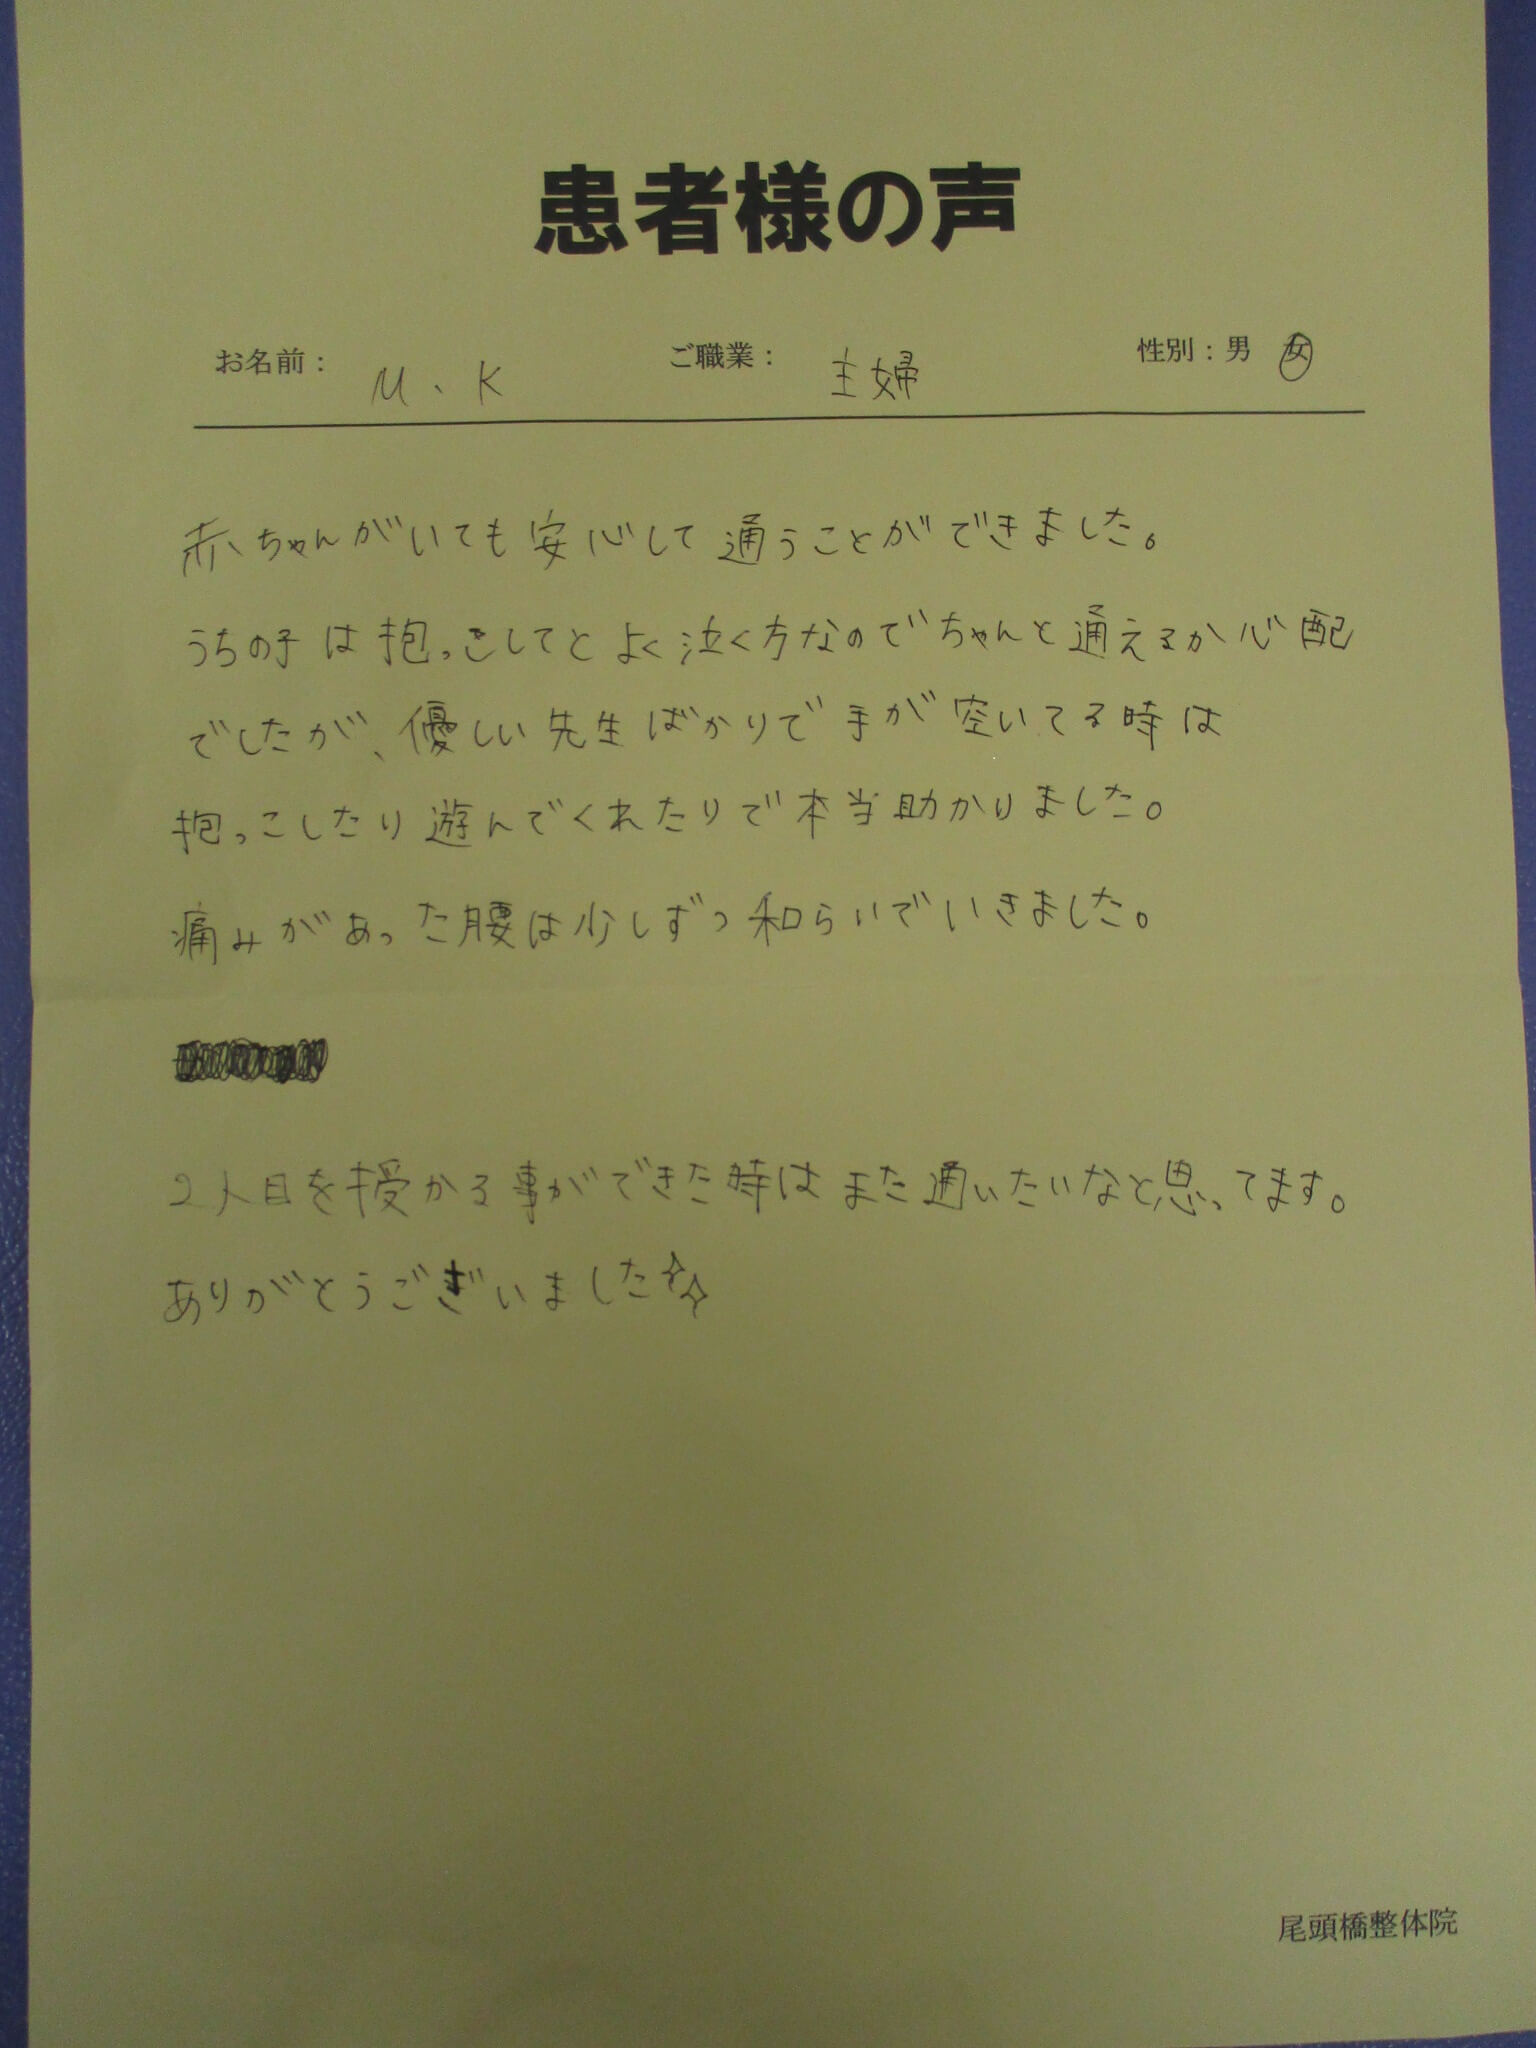 患者様の声
お名前： M、K ご職業： 主婦 性別：男 女
赤ちゃんがいても安心して通うことができました。
うちの子は抱っこしてとよく泣く方なのでちゃんと通えるか心配
でしたが、優しい先生ばかりで手が空いてる時は
抱っこしたり遊んでくれたりで本当助かりました。
痛みがあった腰は少しずつ和らいでいきました。
2人目を授かる事ができた時はまた通いたいなと思ってます。
ありがとうございました☆☆
尾頭橋整体院